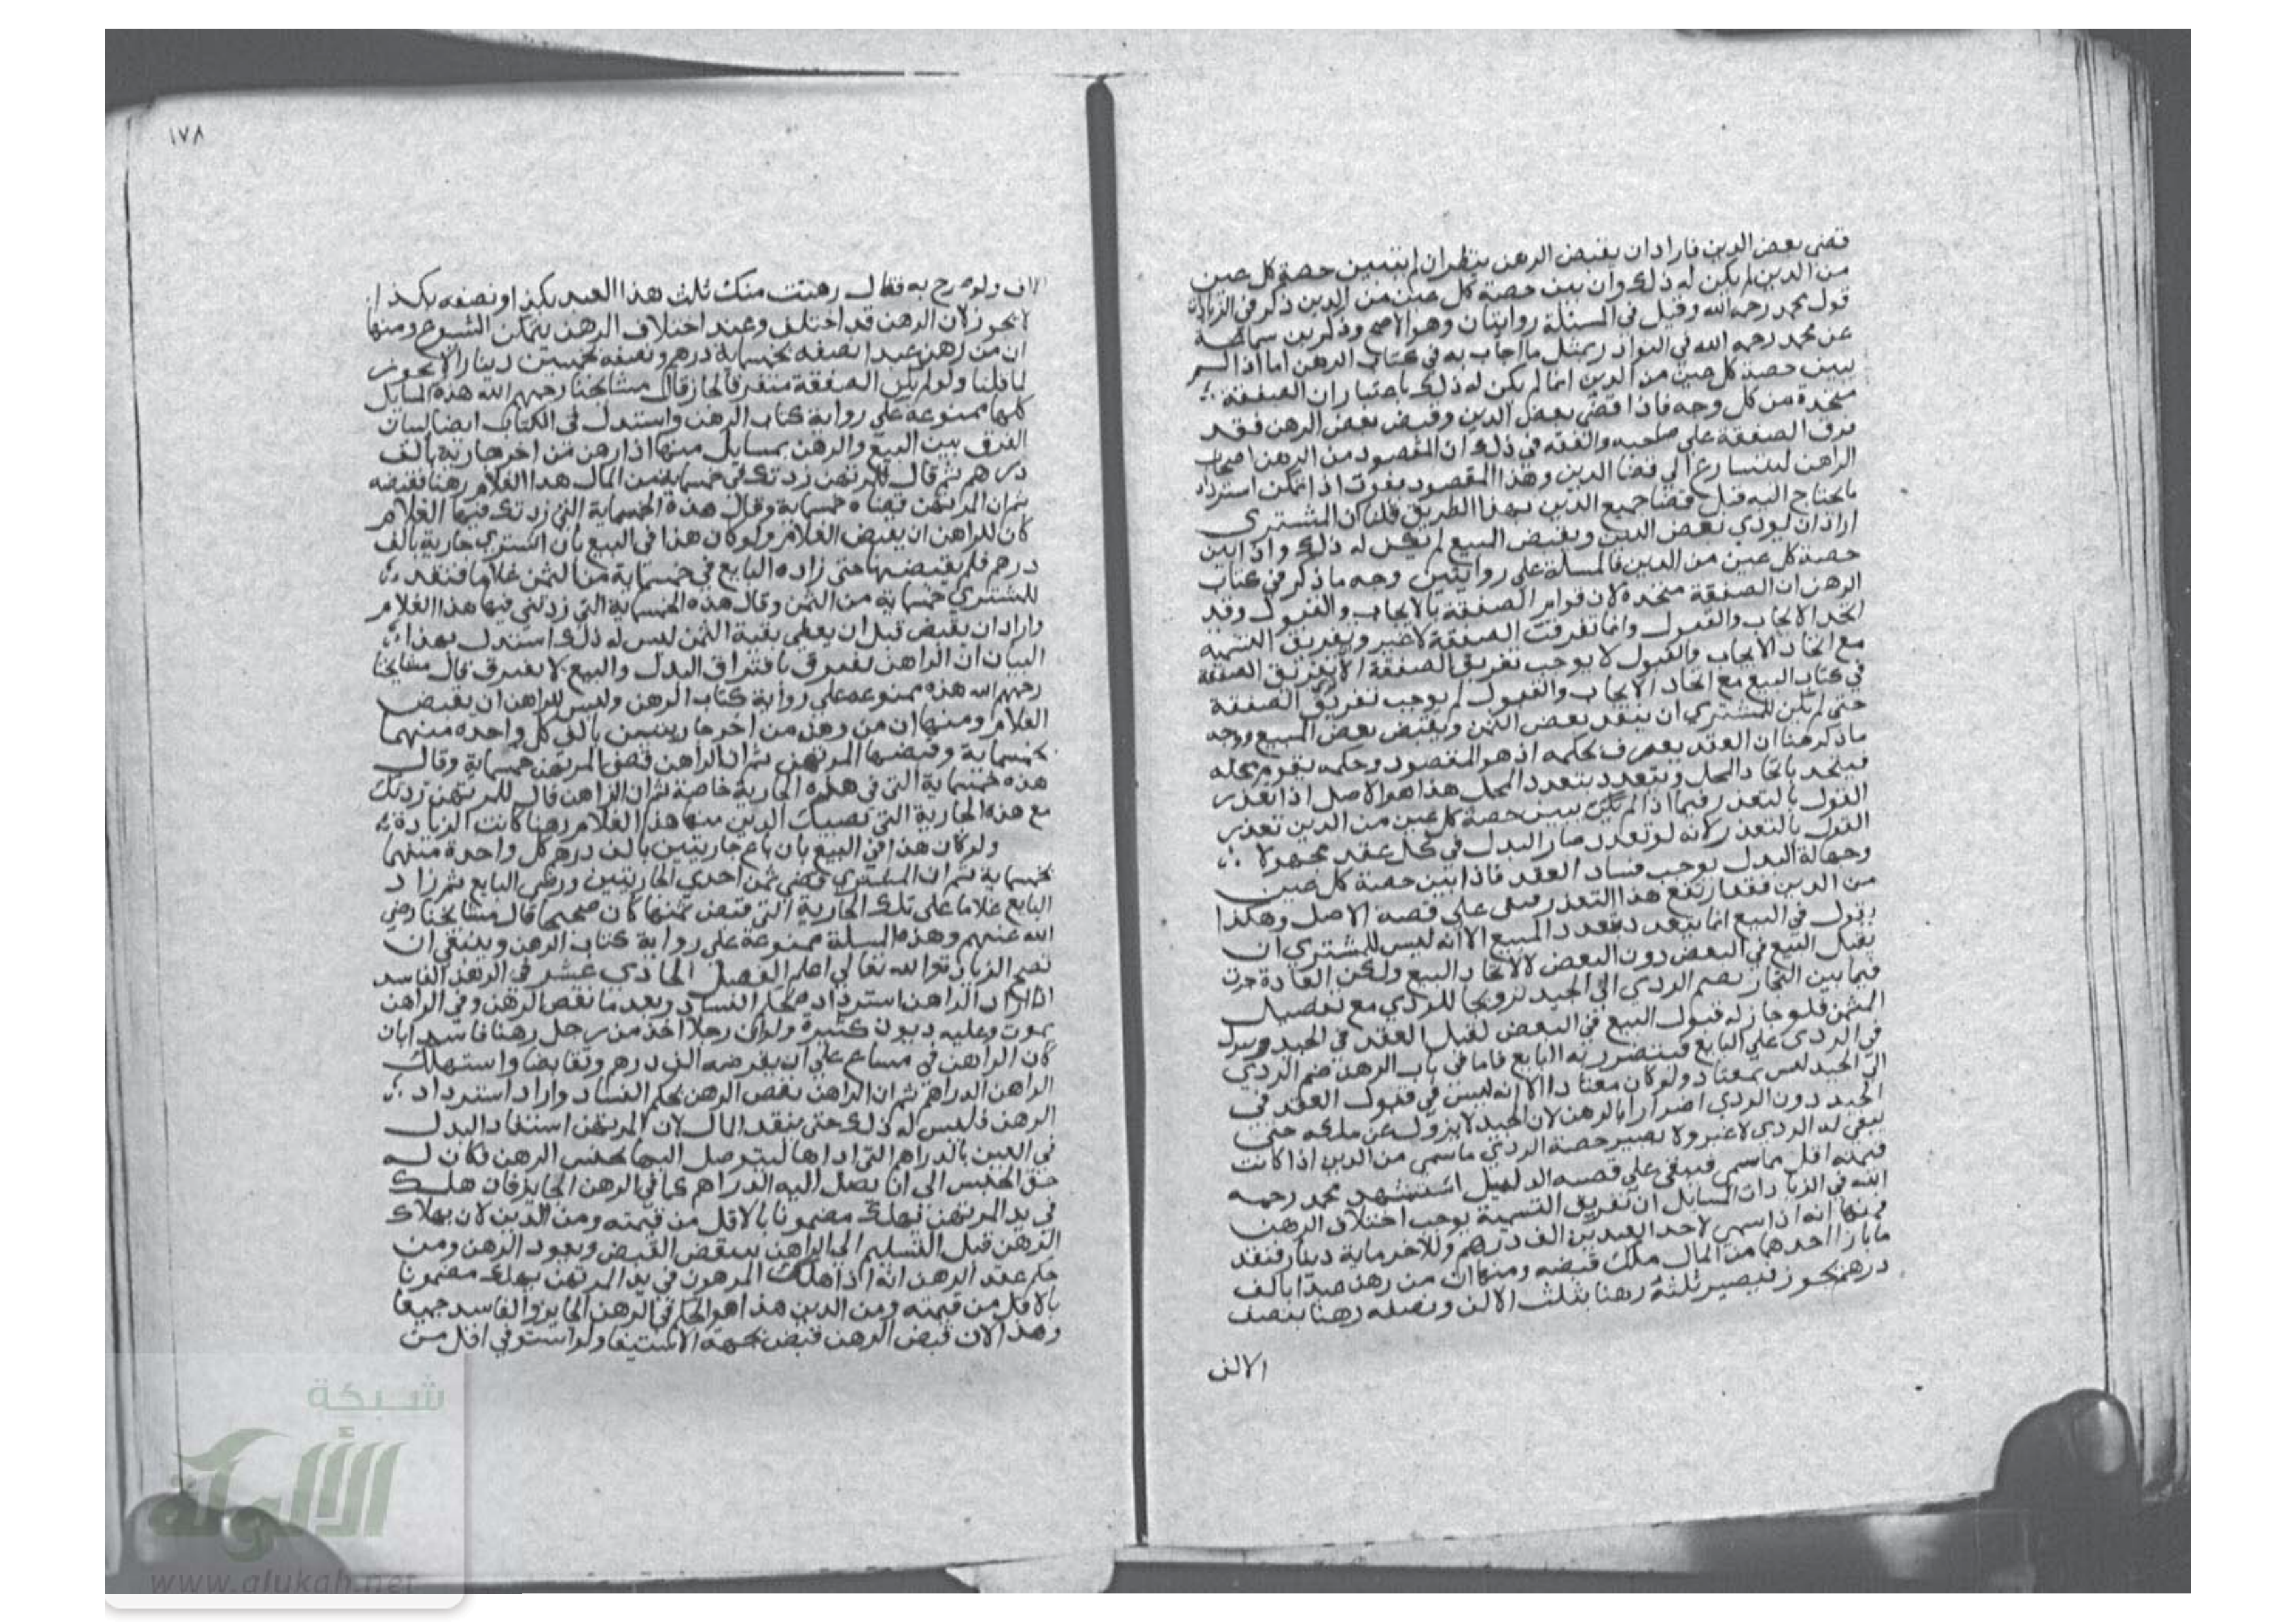 قضى بعض الدين فاراد ان يقبض الرهن ينظر ان لم يتبين حصة كل عين
من الدين لم يكن له ذلك وان بين حصة كل عين من الدين ذكر في الزيادات
قول محمد رحمه الله وقيل في المسئلة روايتان وهو الاصح وذكر بن سماعة
عن محمد رحمه الله في النوادر بمثل ما اجاب به في كتاب الرهن اما اذا لم
يبين حصة كل عين من الدين انما لم يكن له ذلك باعتبار ان الصفقة
متحدة من كل وجه فاذا قضى بعض الدين وقبض بعض الرهن فقد
فرق الصفقة على صاحبه والفقه في ذلك ان المقصود من الرهن اضجار
الراهن ليتسارع الي قضا الدين وهذا المقصود يفوت اذا تمكن استرداد
ما يحتاج اليه قبل قضا جميع الدين بهذا الطريق قلنا ان المشتري
اراد ان يودي بعض الثمن ويقبض المبيع لم يكن له ذلك واذا بين
حصة كل عين من الدين فالمسلة على روايتين وجه ما ذكر في كتاب
الرهن ان الصفقة متحدة لان قوام الصفقة بالايجاب والقبول وقد
اتحد الايجاب والقبول وانما تفرقت الصفقة لا غير وتفريق التسمية
مع اتحاد الايجاب والقبول لا يوجب تفريق الصفقة الا يفترق الصفقة
في كتاب البيع مع اتحاد الايجاب والقبول لم يوجب تفريق الصفقة
حتى لم يكن للمشتري ان ينقد بعض الثمن ويقبض بعض المبيع ووجه
ما ذكر هنا ان العقد يعرف بحكمه اذ هو المقصود وحكمه يقوم بمحله
فيتحد باتحاد المحل ويتعدد بتعدد المحل هذا هو الاصل اذا تعذر
القول بالتعذر فيما اذا لم يكن يبين حصة كل عين من الدين تعذر
القول بالتعذر لانه لو تعدد صار البدل في كل عقد مجهولا
وجهالة البدل يوجب فساد العقد فاذا بين حصة كل عين
من الدين فقد ارتفع هذا التعذر فبقى على قضية الاصل وهكذا
يقول في البيع انما يتعدد بتعدد المبيع الا انه ليس للمشتري ان
يقبل البيع في البعض دون البعض لا لاتحاد البيع ولكن العادة جرت
فيما بين التجار بضم الردي الي الجيد ترويجا للردي مع تفصيل
الثمن فلو جاز له قبول البيع في البعض لقبل العقد في الجيد ويترك
في الردى على البايع فيتضرر به البايع فاما في باب الرهن ضم الردي
الى الجيد ليس بمعتاد ولو كان معتادا الا انه ليس في قبول العقد في
الجيد دون الردي اضرارا بالرهن لان الجيد لا يزول عن ملكه حتى
يبقى له الردى لا غير ولا يصير حصة الردي ما سمى من الدين اذا كانت
قيمته اقل مما سمى فيبقى على قضيه الدليل استشهد محمد رحمه
الله في الزيادات المسايل ان تفريق التسمية يوجب اختلاف الرهن
فمنها انه اذا سمى لاحد العبدين الف درهم وللاخر ماية دينار فنقد
ما بازا احدهما من المال ملك قبضه ومنها ان من رهن عبدا بالف
درهم يجوز فيصير ثلثه رهنا بثلث الالف ونصفه رهنا بنصف
الالف
١٧٨
الالف ولو صرح به فقال رهنت منك ثلث هذا العبد بكذا ونصفه بكذا
لا يجوز لان الرهن قد اختلف وعند اختلاف الرهن يتمكن الشيوع ومنها
ان من رهن عبدا نصفه بخمسماية درهم ونصفه بخمسين دينارا لا يجوز
لما قلنا ولو لم يكن الصفقة متفرقا لجاز قال مشايخنا رحمهم الله هذه المسايل
كلها ممنوعة على رواية كتاب الرهن واستدل في الكتاب ايضا لبيان
الفرق بين البيع والرهن بمسايل منها اذا رهن من اخر جارية بالف
درهم ثم قال للمرتهن زدتك في خمسماية من المال هذا الغلام رهنا فقبضه
ثم ان المرتهن قضاه خمسماية وقال هذه الخمسماية التي زدتك فيها الغلام
كان للراهن ان يقبض الغلام ولو كان هذا في البيع بان اشترى جارية بالف
درهم فلم يقبضها حتى زاده البايع في خمسماية من الثمن غلاما فنقد
للمشتري خمسماية من الثمن وقال هذه الخمسماية التي زدتني فيها هذا الغلام
واراد ان يقبض قبل ان يعطي بقية الثمن ليس له ذلك استدل بهذا
البيان ان الراهن يفترق بافتراق البدل والبيع لا يفترق قال مشايخنا
رحمهم الله هذه ممنوعه على رواية كتاب الرهن وليس للراهن ان يقبض
الغلام ومنها ان من رهن من اخر جاريتين بالف كل واحده منهما
بخمسماية وقبضها المرتهن ثم ان الراهن قضى المرتهن خمسماية وقال
هذه خمسماية التي في هذه الجارية خاصة ثم ان الراهن قال للمرتهن زدتك
مع هذه الجارية التي نصيبك الدين منها هذا الغلام رهنا كانت الزيادة
ولو كان هذا في البيع بان باع جاريتين بالف درهم كل واحدة منهما
بخمسماية ثم ان المشتري قضى ثمن احدى الجاريتين ورضى البايع ثم زاد
البايع غلاما على تلك الجارية التي قبض ثمنها كان صحيحا قال مشايخنا رضي
الله عنهم وهذه المسلة ممنوعة على رواية كتاب الرهن وينبغي ان
تصح الزيادة والله تعالي اعلم الفصل الحادي عشر في الرهن الفاسد
اذا اراد الراهن استرداد بحكم الفساد وبعدما نقص الرهن وفي الراهن
يموت وعليه ديون كثيرة ولو ان رجلا اخذ من رجل رهنا فاسدا بان
كان الراهن في مساع على ان يقرضه الف درهم وتقابضا واستهلك
الراهن الدراهم ثم ان الراهن نقض الرهن بحكم الفساد واراد استرداد
الرهن فليس له ذلك حتى ينقد المال لان المرتهن استفاد البدل
في العين بالدراهم التي اداها ليتوصل اليها بحبس الرهن فكان له
حق الحبس الى ان يصل اليه الدراهم كما في الرهن الجايز فان هلك
في يد المرتهن يهلك مضمونا بالاقل من قيمته ومن الدين لان بهلاك
الرهن قبل التسليم الى الراهن ينتقض القبض ويعود الرهن ومن
حكم عقد الرهن انه اذا هلك المرهون في يد المرتهن يهلك مضمونا
بالاقل من قيمته ومن الدين هذا هو الحكم في الرهن الجايز والفاسد جميعا
وهذا لان قبض الرهن قبض بجهة الاستيفا ولو استوفي اقل من
شبكة
الألوكة
www.alukah.net